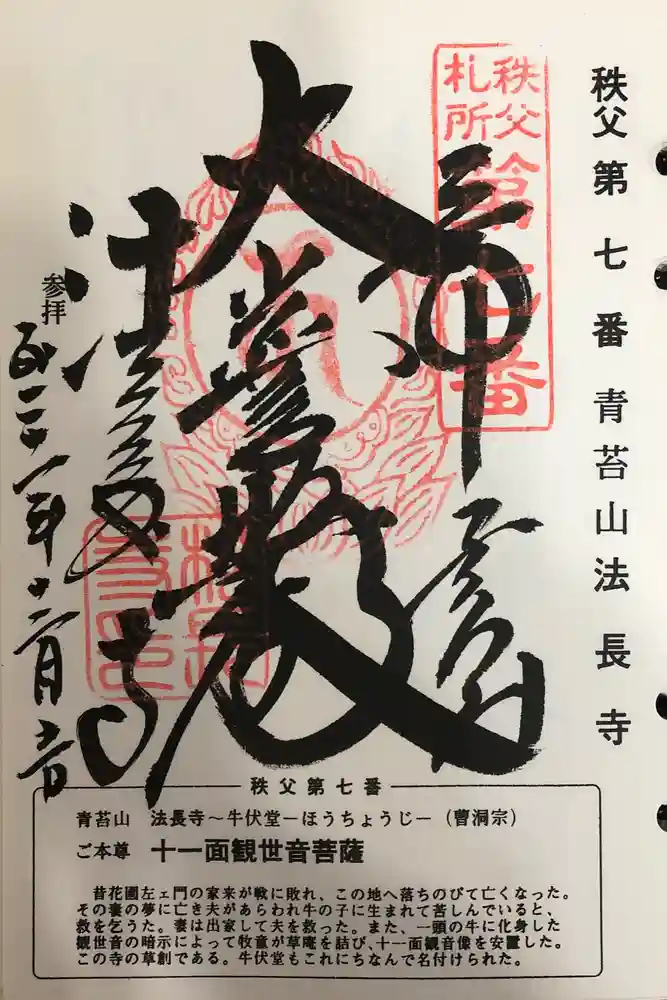 秩父第七番 青苔山法長寺
秩父
札所
第七番
奉拝
大悲殿
法長寺
参拝
秩父第七番
青苔山 法長寺～牛伏堂－ほうちょうじ－（曹洞宗）
ご本尊 十一面観世音菩薩
昔花園左ェ門の家来が戦に敗れ、この地へ落ちのびて亡くなった。
その妻の夢に亡き夫があらわれ牛の子に生まれて苦しんでいると、
救を乞うた。妻は出家して夫を救った。また、一頭の牛に化身した
観世音の暗示によって牧童が草庵を詰び、十一面観音像を安置した。
この寺の草創である。牛伏堂もこれにちなんで名付けられた。